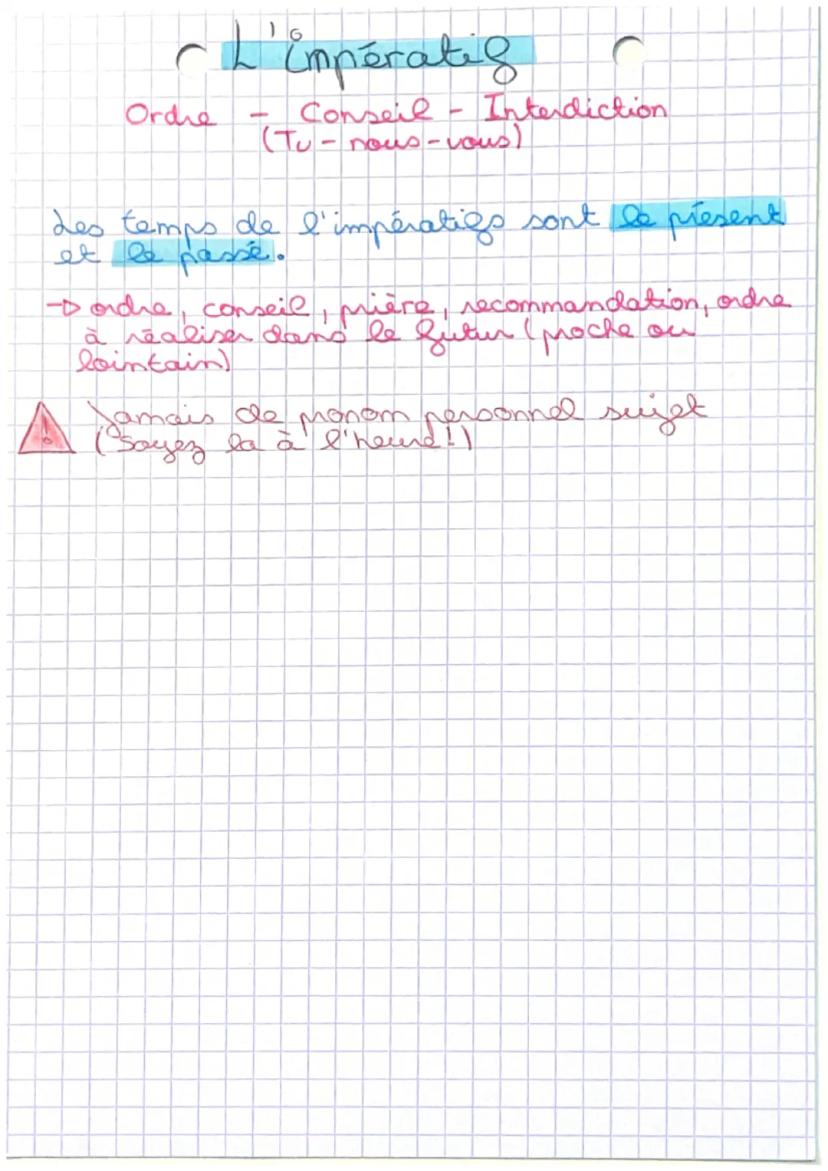 L'impératif
Ordre - Conseil - Interdiction
(Tu - nous - vous)
Les temps de l'impératif sont le présent
et le passé.
→ ordre, conseil, prière, recommandation, ordre
à réaliser dans le futur (proche ou
lointain)
! Jamais de pronom personnel sujet
(Soyez la à l'heure!)